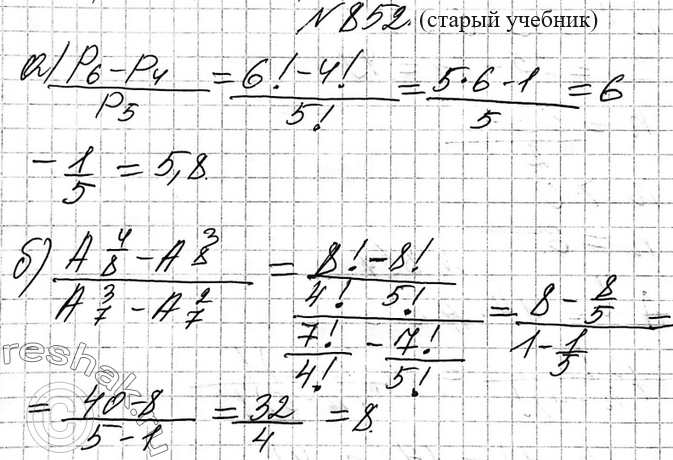 № 852. (старый учебник)
а) (P₆ – P₄)/P₅ = (6! – 4!)/5! = (5·6 – 1)/5 = 6
– 1/5 = 5,8.
б) (A⁴₈ – A³₈)/(A³₇ – A²₇) = (8!/4! – 8!/5!)/(7!/4! – 7!/5!) = (8 – 8/5)/(1 – 1/5) =
= (40 – 8)/(5 – 1) = 32/4 = 8.
reshak.ru